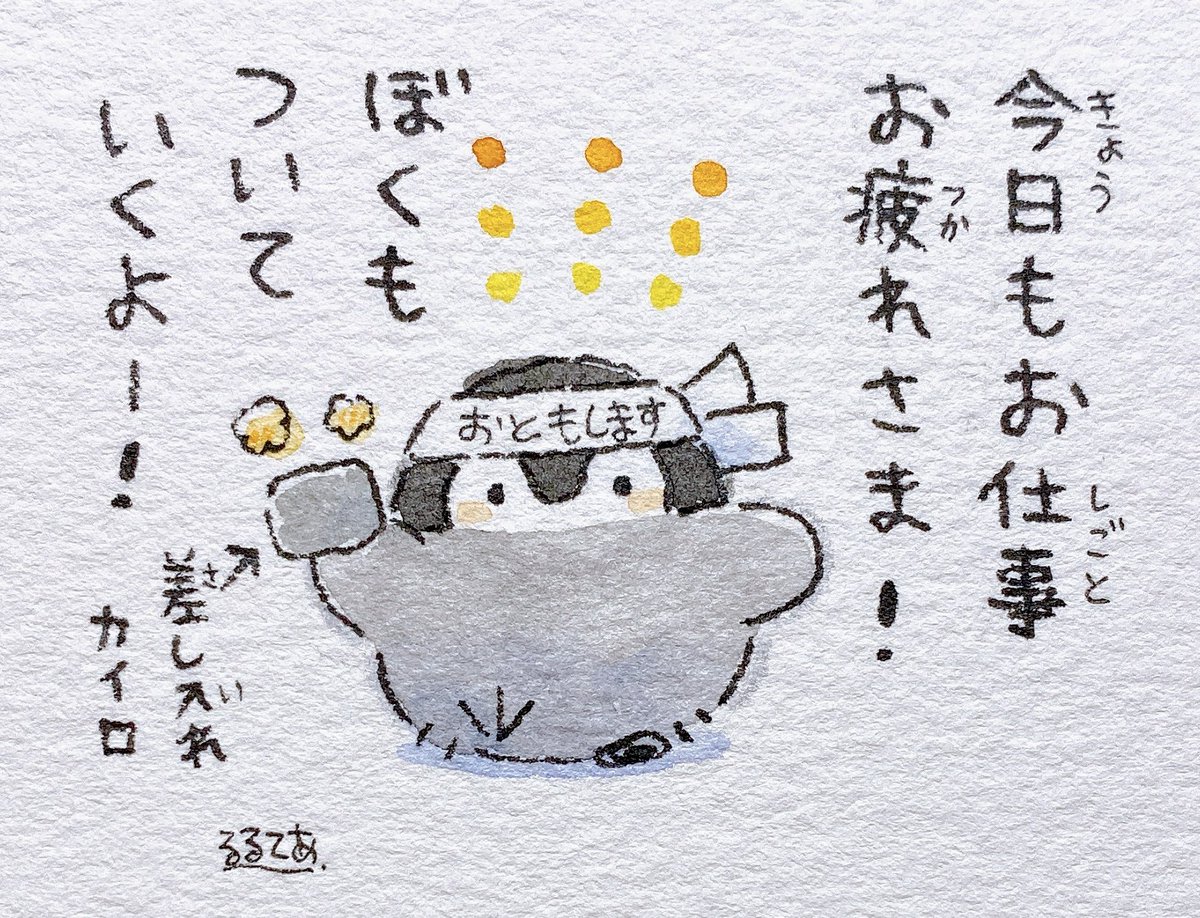 今日もお仕事
きょう
しごと
お疲れさま！
つか
ぼくも
ついて
いくよー！
おともします
差し入れ
さ
い
カイロ
るるてあ.